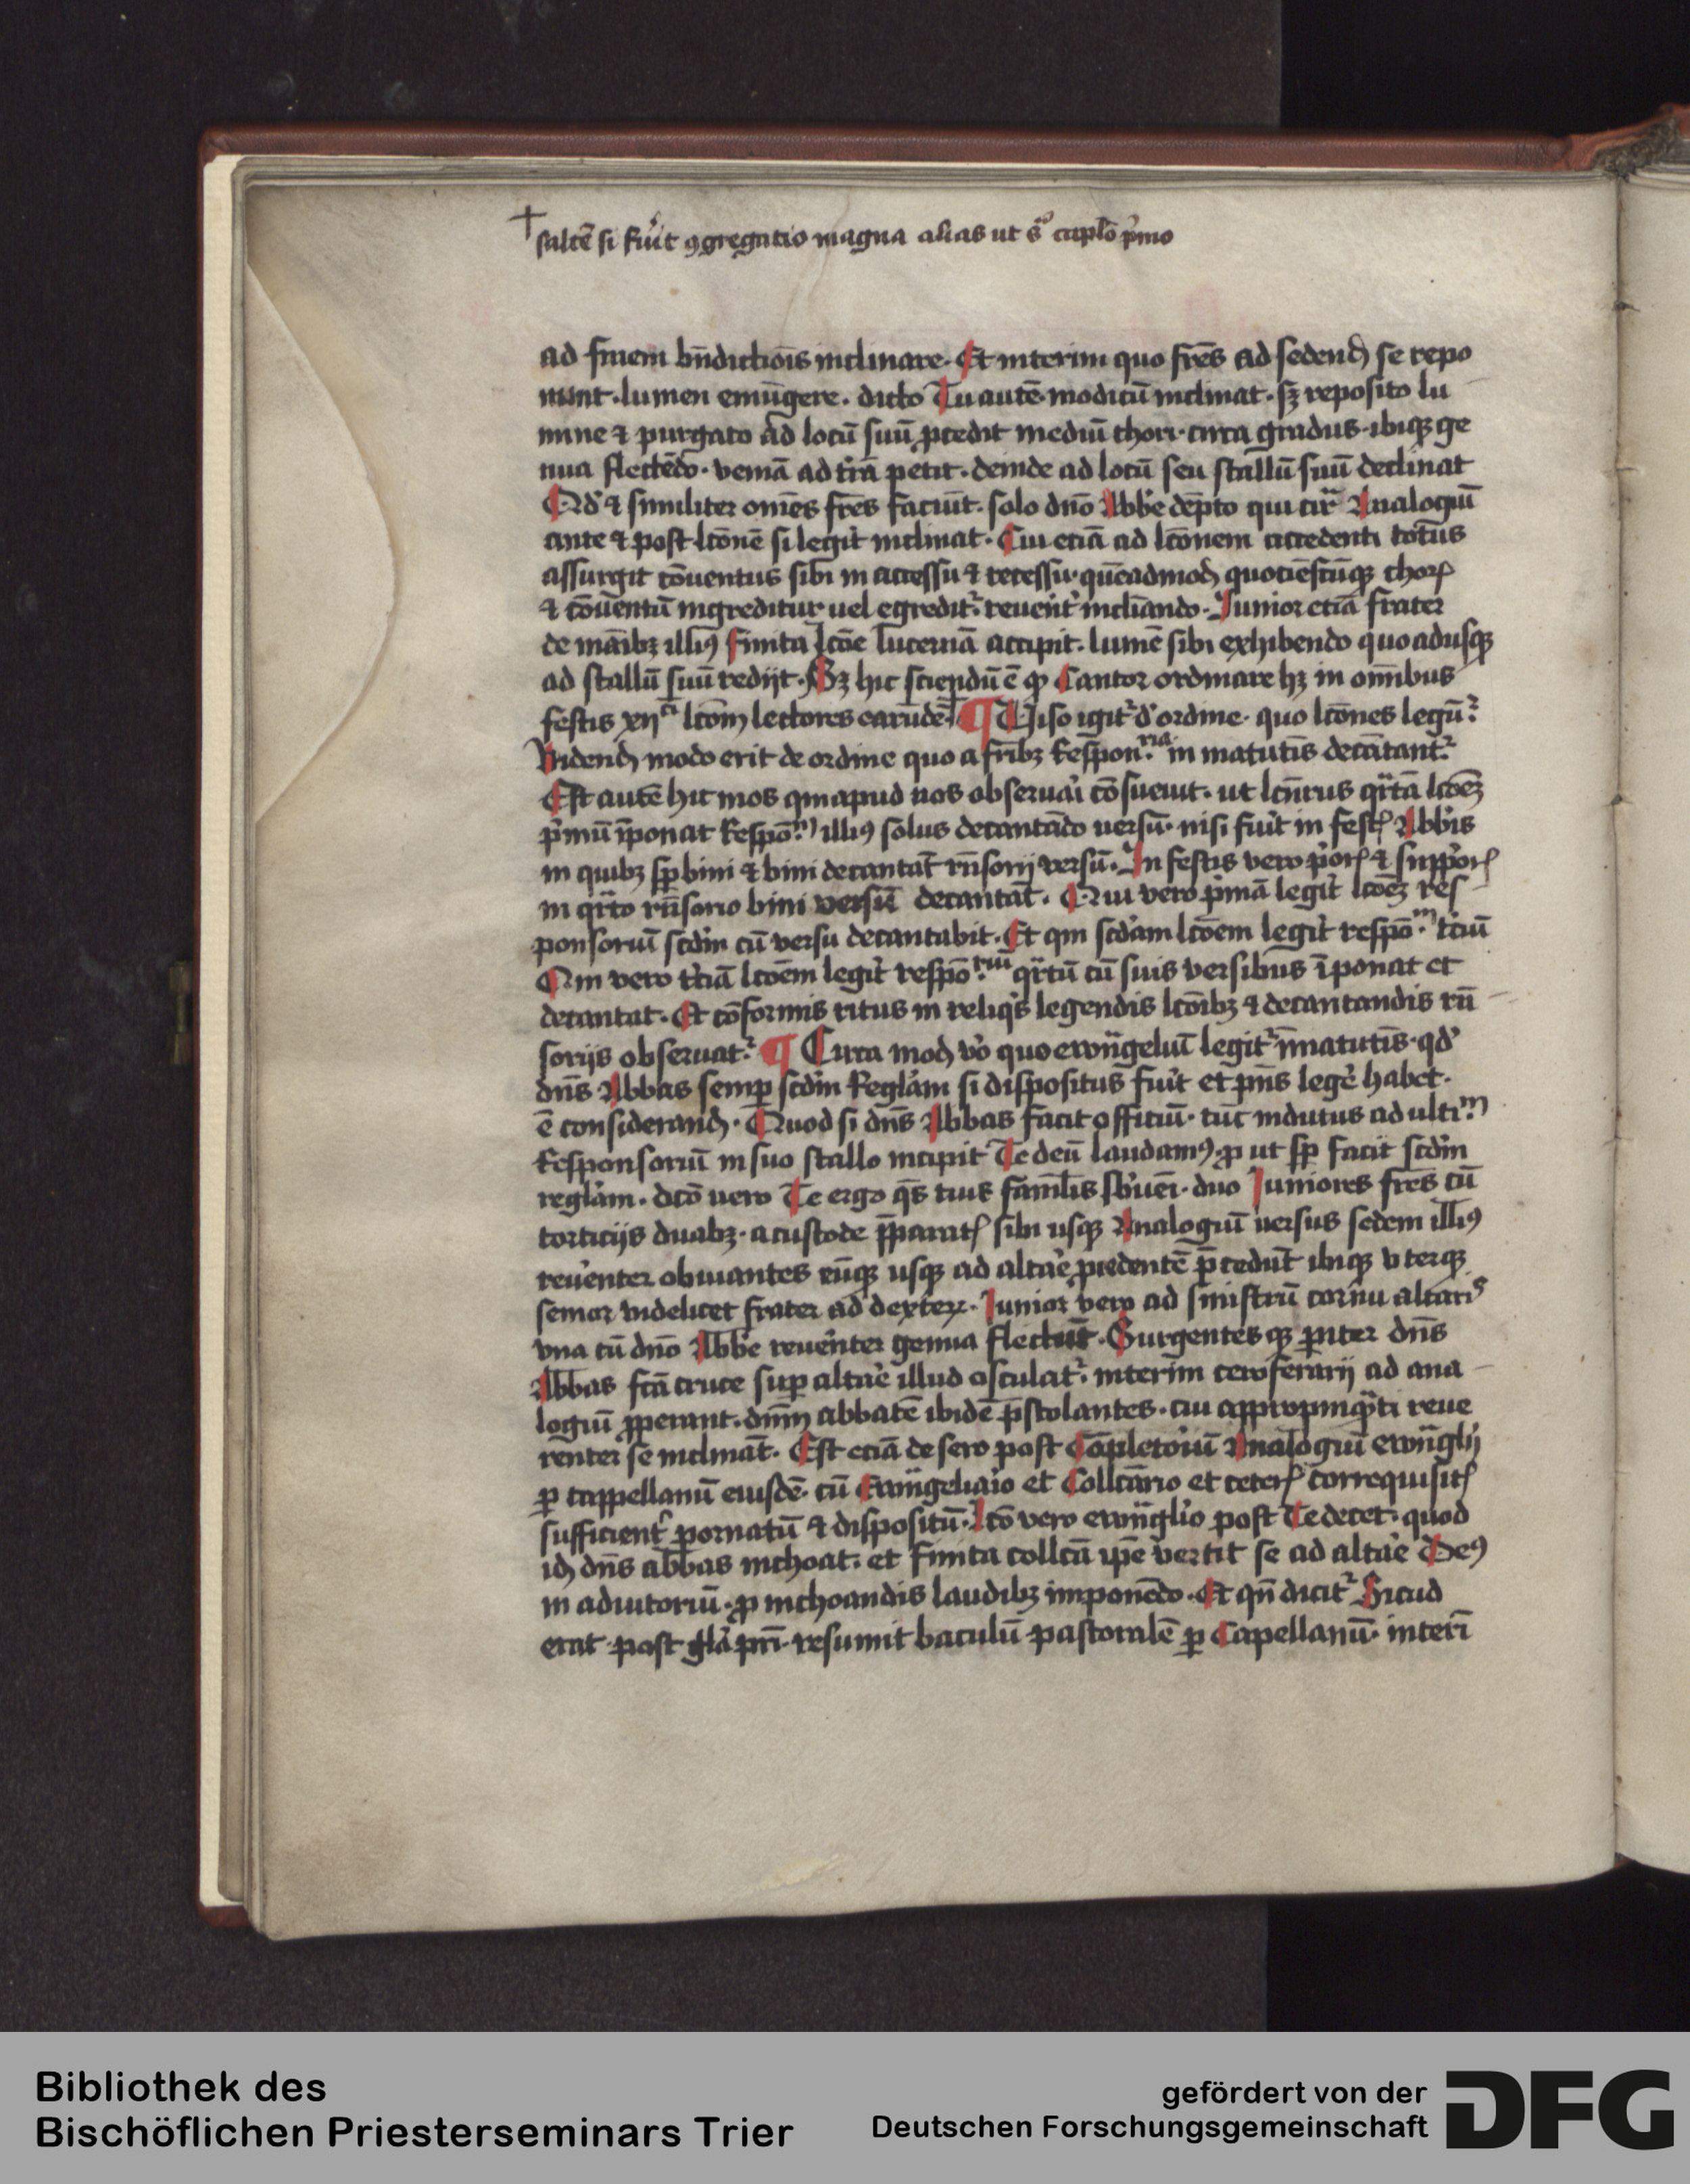 saltē si fuˀit ꝯgregatio magna alias ut sº capło pˀmo
ad finem bn̄dictiōis inclinare. Et interim quo fr̄es ad sedend̄ se repo
nunt. lumen emūgere. dicto Tu autē modicū inclinat. sꝫ reposito lu
mine ⁊ purgato ad locū suū ꝓcedit mediū chori circa gradus ibiqꝫ ge
nua flectēdo. veniā ad tˀrā petit. deinde ad locū seu stallū suū declinat
Qd' ⁊ similiter om̄es fr̄es faciūt. solo dn̄o Abb̄e dēpto qui circa Analogiū
ante ⁊ post lc̄onē si legit inclinat. Cui etiā ad lc̄onem accedenti totus
assurgit cōuentus sibi in accessu ⁊ recessu. quēadmod̄ quotiēscūqꝫ choꝝ
⁊ cōuentū ingreditur uel egreditˀ reuerˀent inclināndo. Junior etiā frater
de māibꝫ illiꝰ finita lc̄oe lucernā accipit. lumē sibi exhibendo quoadusqꝫ
ad stallū suū redijt. Sꝫ hic sciendū ē ꝙ Cantor ordinare hꝫ in om̄ibus
festis xij lc̄onū lectores earūdē. ¶ Viso igitˀ d' ordine quo lc̄ones legūtˀ
Vidend̄ modo erit de ordine quo a frībꝫ Respon.ria in matutīs decātantˀ
Est autē hic mos qui apud nos obseruari cōsueuit. ut lc̄turus qˀrtā lc̄oēꝫ
pˀmū īponat Respō.m illiꝰ solus decantādo uersū. nisi fuˀit in festꝭ Abb̄is
in quibꝫ sp̄ bini ⁊ bini decantāt rn̄sorij versū. In festis vero pˀoꝝ ⁊ suppˀoꝝ
in qˀrto rn̄sorio bini versū decantāt. Qui vero pˀmā legit lc̄oēꝫ res
ponsoriū scd̄m cū versu decantabit. Et qui scd̄am lc̄oem legit respō.m tˀciū
Qui vero tˀciā lc̄oem legit respō.riū qˀrtū cū suis versibus īponat et
decantat. Et cōformis ritus in reliqˀs legendis lc̄oibꝫ ⁊ decantandis rn̄
sorijs obseruatˀ. ¶ Circa mod̄ vˀo quo ewn̄geliū legitˀ in matutīs. qd'
dn̄s Abbas semꝑ scd̄m Reglˀam si dispositus fuˀit et pn̄s legeˀ habet.
ē considerand̄. Quod si dn̄s Abbas facit officiū. tūc indutus ad ulti.m
Responsoriū in suo stallo incipit Te deū laudamꝰ. ꝓ ut sp̄ facit scd̄m
reglˀam. dc̄o vero Te ergo qˀs tuis famīs sbˀueni. duo Juniores fr̄es cū
torticijs duabꝫ. a custode p̄paratꝭ sibi usqꝫ Analogiū versus sedem illiꝰ
reuˀenter obuiantes eūqꝫ usqꝫ ad altarˀe ꝓcedentē p̄cedūt ibiqꝫ vterqꝫ
senior videlicet frater ad dexteꝝ. Junior vero ad sinistrū cornu altaris
vna cū dn̄o Abb̄e reuˀenter genua flectūt. Surgentesqꝫ ꝑiter dn̄s
Abbas fc̄a cruce suꝑ altarˀe illud osculatˀ. interim ceroferarij ad ana
logiū ꝓperant. dn̄m abbatē ibidē p̄stolantes. cui appropinqˀti reue
renter se inclināt. Est etiā de sero post Cōpletoriū Analogiū ewn̄glij
ꝑ cappellanū eiusdē. cū Ewn̄geliario et Collc̄ario et ceterꝭ correquisitꝭ
sufficientˀ ꝑornatū ⁊ dispositū. Lc̄o vero ewn̄glio post Te decet. quod
id̄ dn̄s abbas inchoat. et finita collc̄a ip̄e vertit se ad altarˀe Deꝰ
in adiutoriū. ꝓ inchoandis laudibꝫ imponēdo. Et qn̄ dicitˀ Sicud
erat post glˀa pr̄i. resumit baculū pastoralē ꝑ Capellanū. interī
Bibliothek des
Bischöflichen Priesterseminars Trier
gefördert von der
Deutschen Forschungsgemeinschaft
DFG